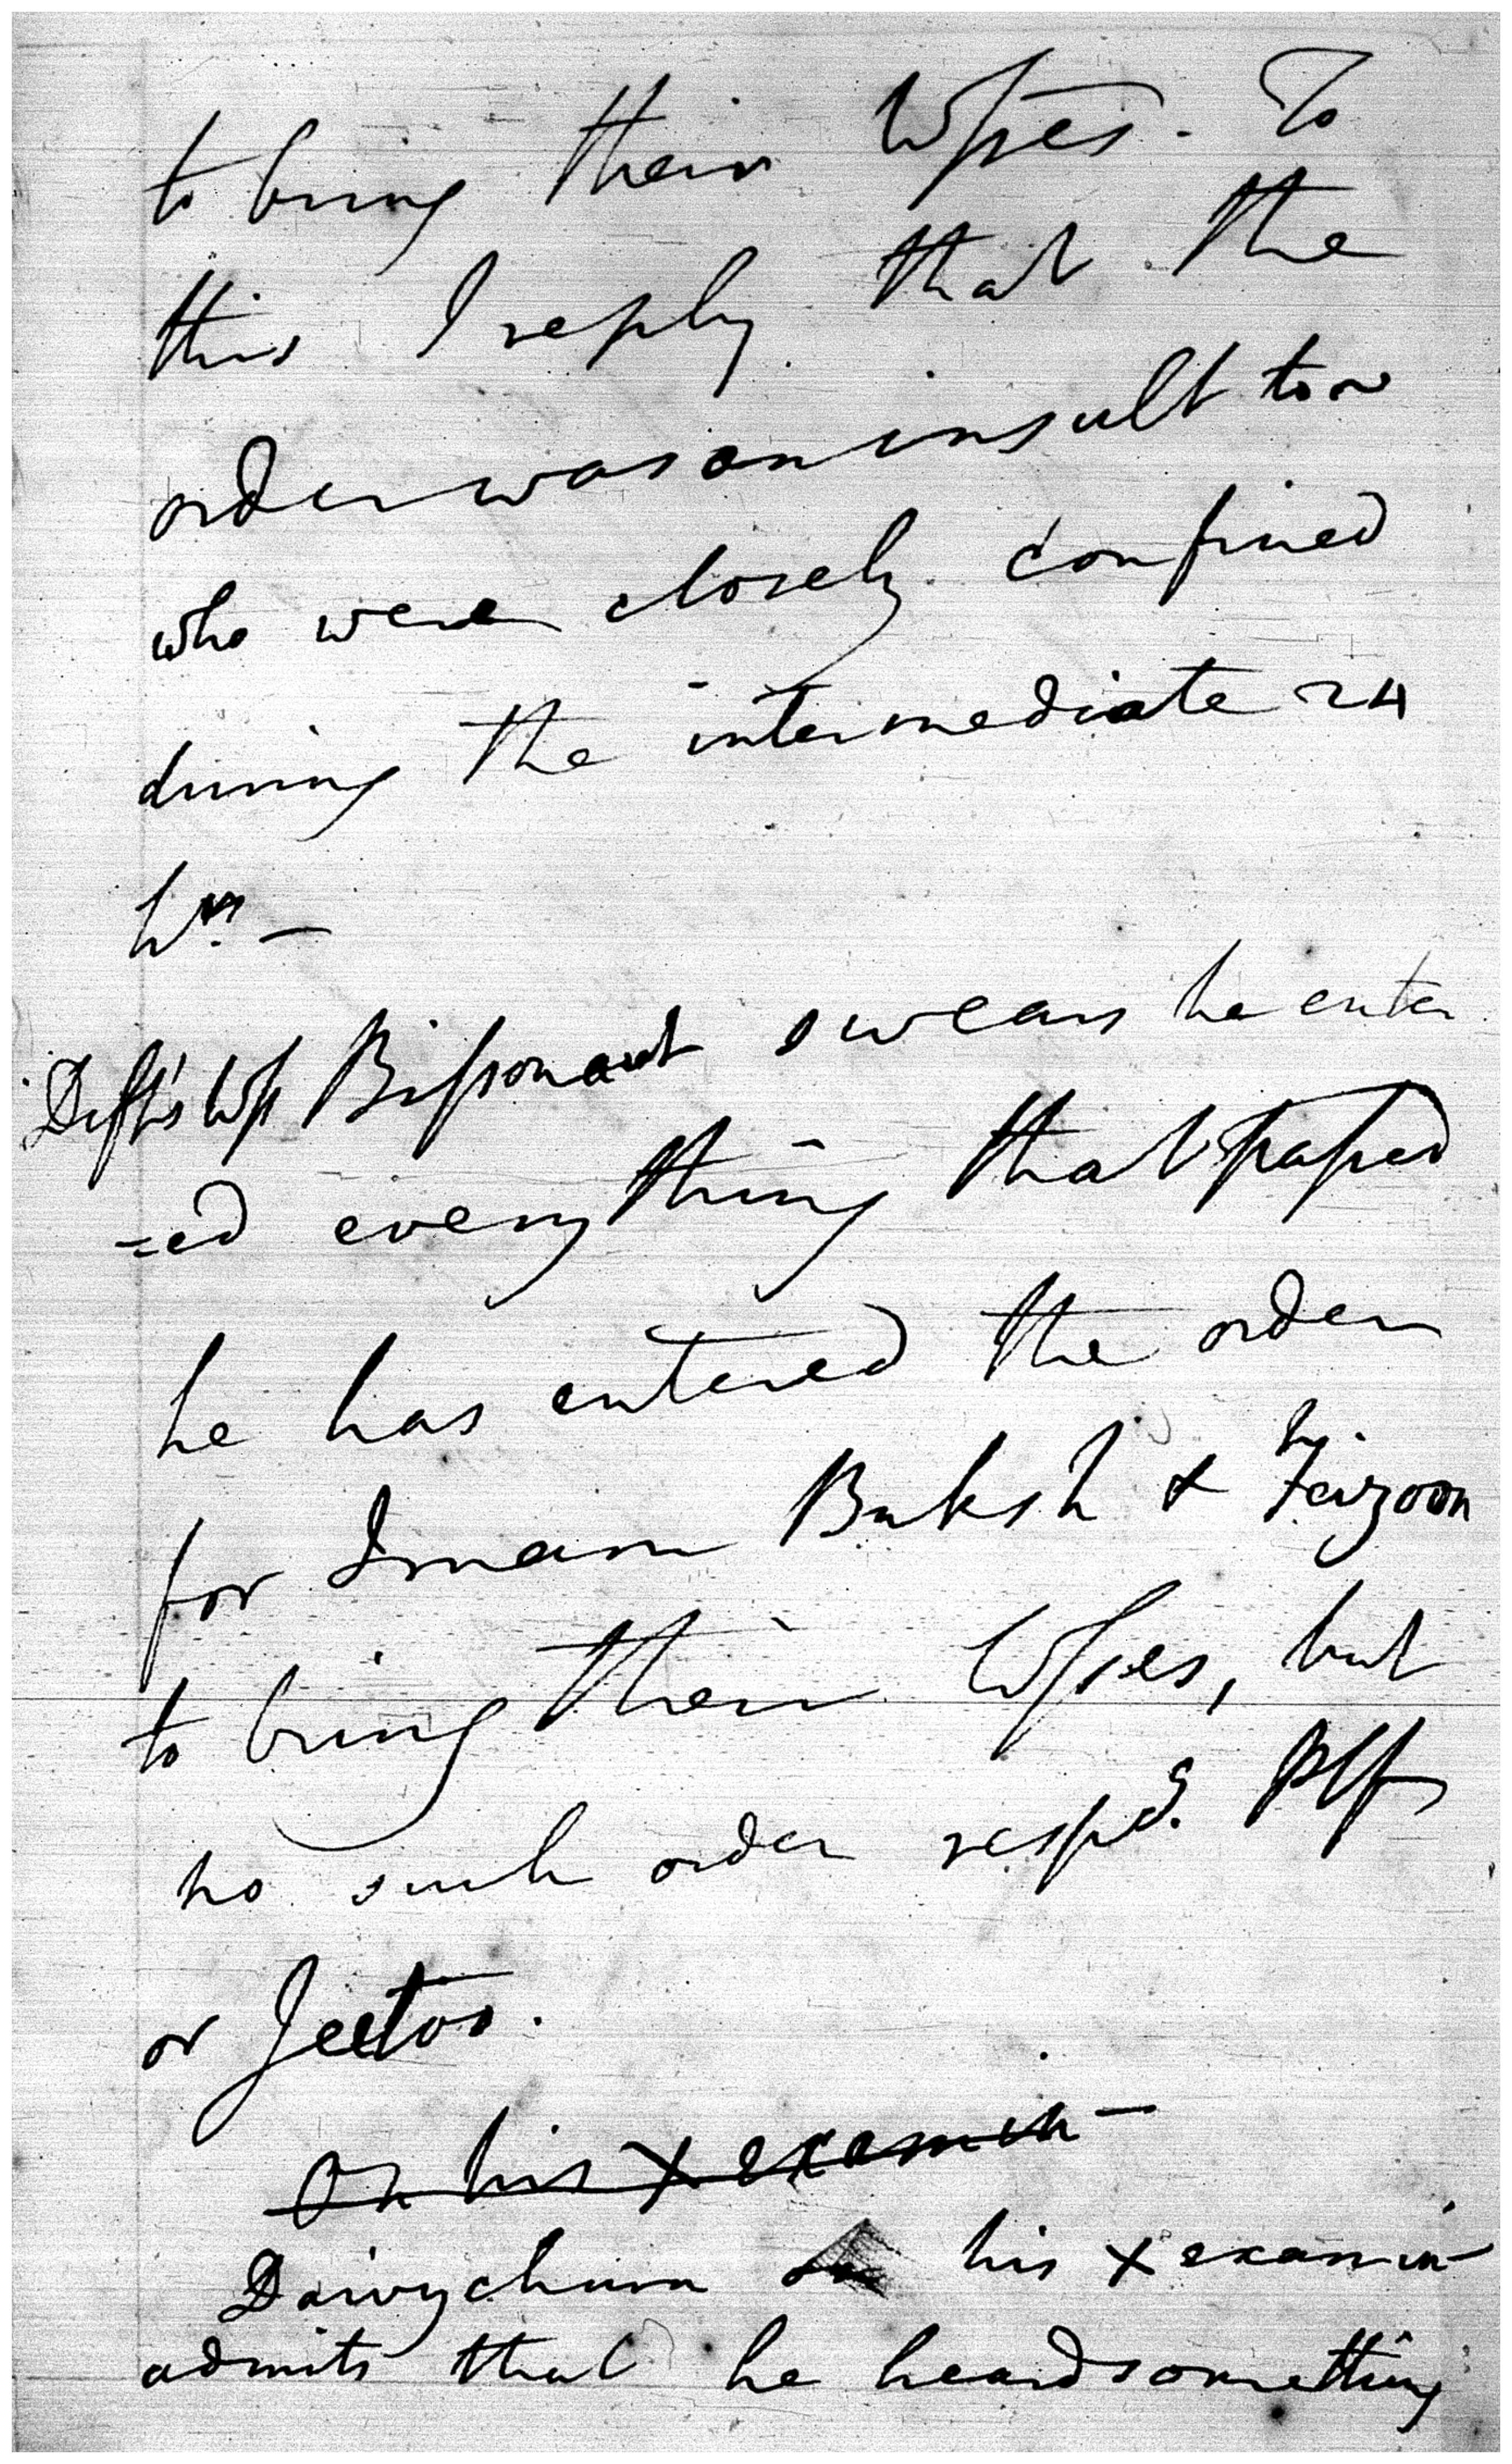 to bring their Wsses. To
this I reply that the
order was an insult to
who were closely confined
during the intermediate 24
hrs. —
Deft's Wss Bissonaut swears he enter
=ed every thing that passed
he has entered the order
for Imam Buksh & Faizoon
to bring their Wsses, but
no such order respg. Plff
or Jeetoo.
On his x examin -
Doivychurn in his x examin
admits that he heard something